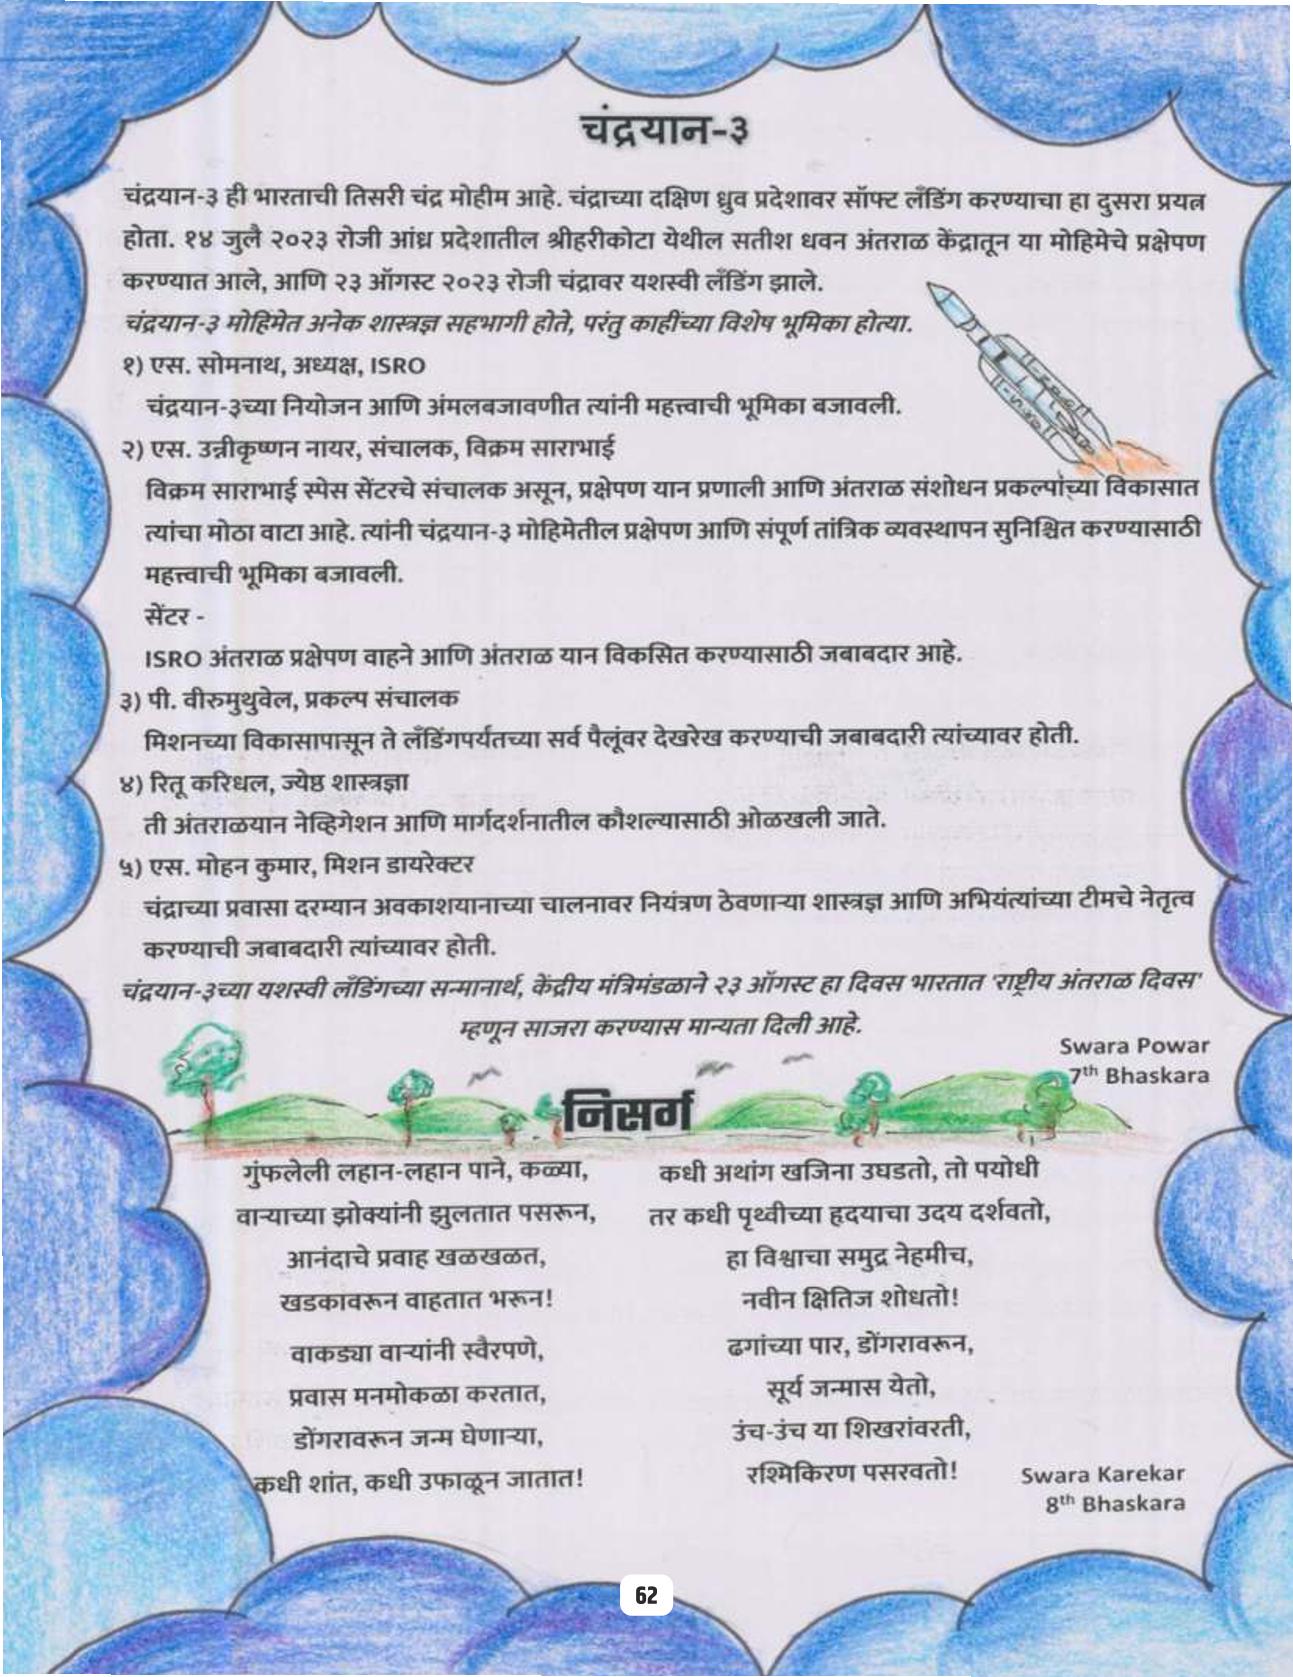 चंद्रयान-३
चंद्रयान-३ ही भारताची तिसरी चंद्र मोहीम आहे. चंद्राच्या दक्षिण ध्रुव प्रदेशावर सॉफ्ट लँडिंग करण्याचा हा दुसरा प्रयत्न
होता. १४ जुलै २०२३ रोजी आंध्र प्रदेशातील श्रीहरीकोटा येथील सतीश धवन अंतराळ केंद्रातून या मोहिमेचे प्रक्षेपण
करण्यात आले, आणि २३ ऑगस्ट २०२३ रोजी चंद्रावर यशस्वी लँडिंग झाले.
चंद्रयान-३ मोहिमेत अनेक शास्त्रज्ञ सहभागी होते, परंतु काहींच्या विशेष भूमिका होत्या.
१) एस. सोमनाथ, अध्यक्ष, ISRO
चंद्रयान-३च्या नियोजन आणि अंमलबजावणीत त्यांनी महत्त्वाची भूमिका बजावली.
२) एस. उन्नीकृष्णन नायर, संचालक, विक्रम साराभाई
विक्रम साराभाई स्पेस सेंटरचे संचालक असून, प्रक्षेपण यान प्रणाली आणि अंतराळ संशोधन प्रकल्पांच्या विकासात
त्यांचा मोठा वाटा आहे. त्यांनी चंद्रयान-३ मोहिमेतील प्रक्षेपण आणि संपूर्ण तांत्रिक व्यवस्थापन सुनिश्चित करण्यासाठी
महत्त्वाची भूमिका बजावली.
सेंटर -
ISRO अंतराळ प्रक्षेपण वाहने आणि अंतराळ यान विकसित करण्यासाठी जबाबदार आहे.
३) पी. वीरुमुथुवेल, प्रकल्प संचालक
मिशनच्या विकासापासून ते लँडिंगपर्यंतच्या सर्व पैलूंवर देखरेख करण्याची जबाबदारी त्यांच्यावर होती.
४) रितू करिधल, ज्येष्ठ शास्त्रज्ञा
ती अंतराळयान नेव्हिगेशन आणि मार्गदर्शनातील कौशल्यासाठी ओळखली जाते.
५) एस. मोहन कुमार, मिशन डायरेक्टर
चंद्राच्या प्रवासा दरम्यान अवकाशयानाच्या चालनावर नियंत्रण ठेवणाऱ्या शास्त्रज्ञ आणि अभियंत्यांच्या टीमचे नेतृत्व
करण्याची जबाबदारी त्यांच्यावर होती.
चंद्रयान-३च्या यशस्वी लँडिंगच्या सन्मानार्थ, केंद्रीय मंत्रिमंडळाने २३ ऑगस्ट हा दिवस भारतात 'राष्ट्रीय अंतराळ दिवस'
म्हणून साजरा करण्यास मान्यता दिली आहे.
Swara Powar
7th Bhaskara
निसर्ग
गुंफलेली लहान-लहान पाने, कळ्या,
वाऱ्याच्या झोक्यांनी झुलतात पसरून,
आनंदाचे प्रवाह खळखळत,
खडकावरून वाहतात भरून!
वाकड्या वाऱ्यांनी स्वैरपणे,
प्रवास मनमोकळा करतात,
डोंगरावरून जन्म घेणाऱ्या,
कधी शांत, कधी उफाळून जातात!
कधी अथांग खजिना उघडतो, तो पयोधी
तर कधी पृथ्वीच्या हृदयाचा उदय दर्शवतो,
हा विश्वाचा समुद्र नेहमीच,
नवीन क्षितिज शोधतो!
ढगांच्या पार, डोंगरावरून,
सूर्य जन्मास येतो,
उंच-उंच या शिखरांवरती,
रश्मिकिरण पसरवतो!
Swara Karekar
8th Bhaskara
62